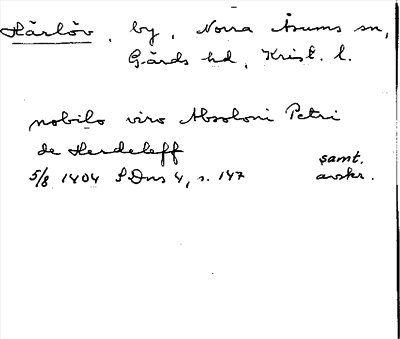 Härlöv, by, Norra Åsums sn,
Gärds hd, Krist. l.
nobilo viro Absoloni Petri
de Herdeleff samt.
5/8 1404 SDns 4, s. 147 avskr.